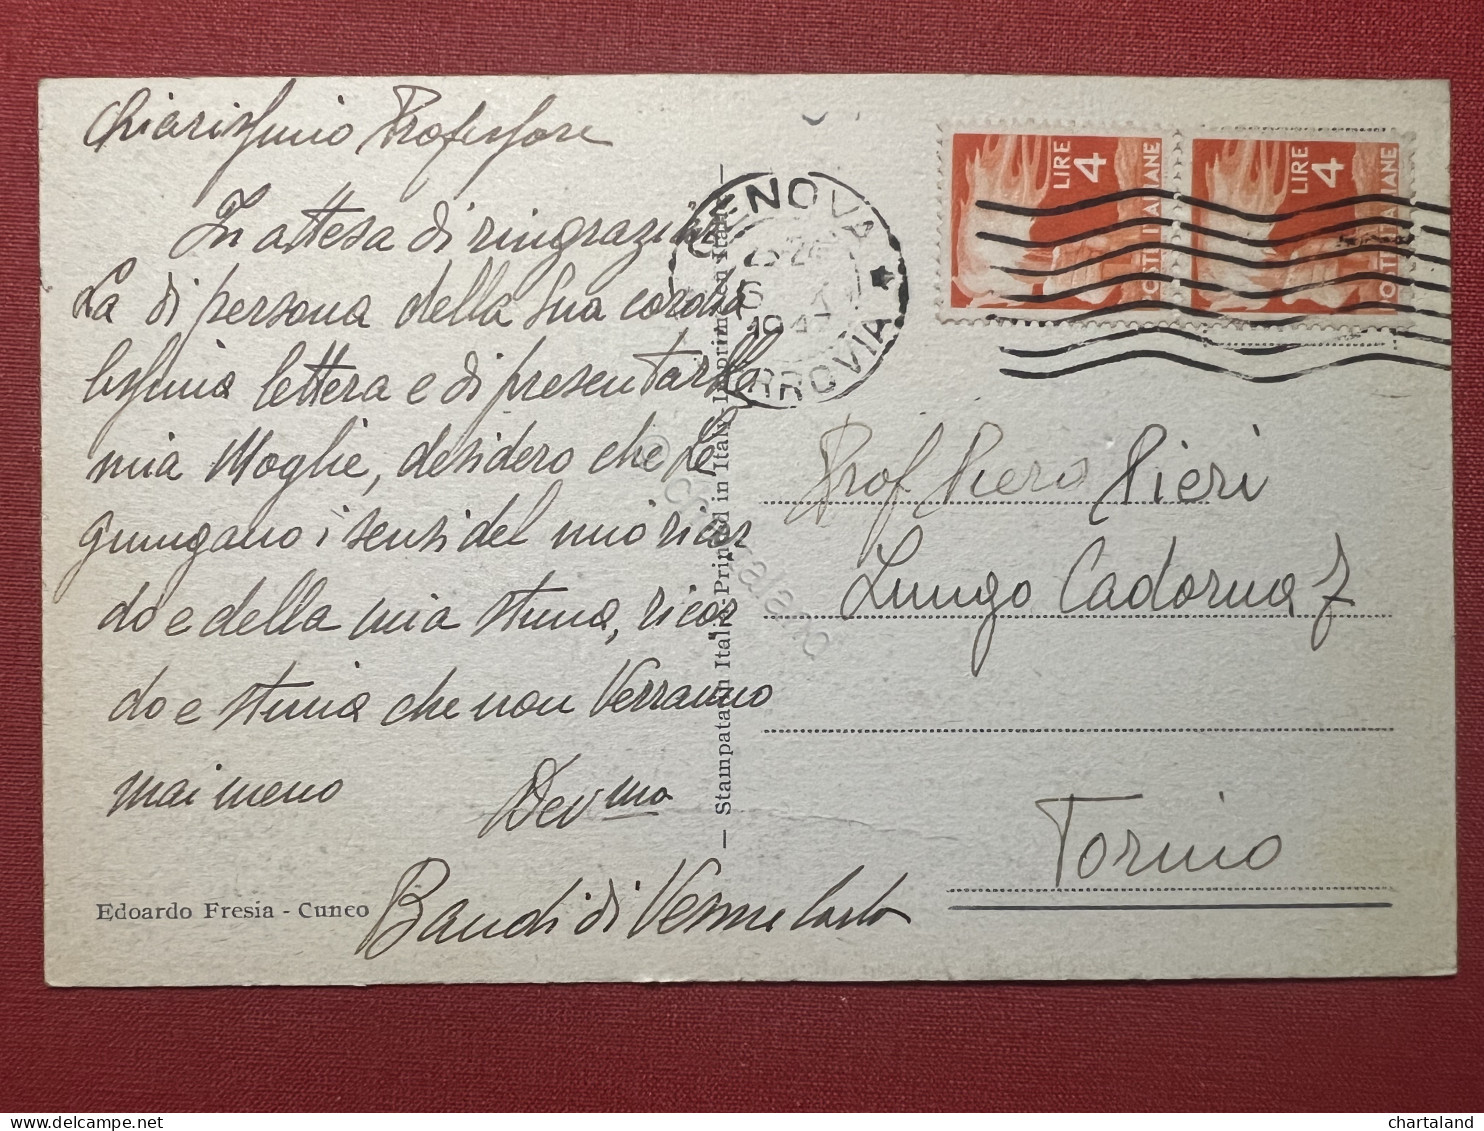 Chiarissimo Professore
In attesa di ringraziar
La di persona della Sua cordia
lissima lettera e di presentarLe
mia Moglie, desidero che Le
giungano i sensi del mio ricor
do e della mia stima, ricor
do e stima che non Verranno
mai meno
Dev mo
Bandi di Vesme Carlo
Edoardo Fresia - Cuneo
Stampata in Italia - Printed in Italy -
GENOVA
FERROVIA
23-24
194
LIRE 4
LIRE 4
POSTE ITALIANE
Prof Piero Pieri
Lungo Cadorna 7
Torino
chartaland